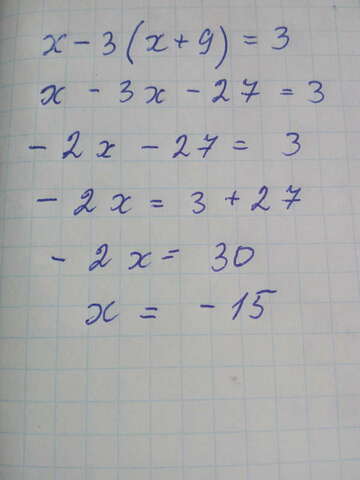 x - 3(x + 9) = 3
x - 3x - 27 = 3
- 2x - 27 = 3
- 2x = 3 + 27
- 2x = 30
x = - 15